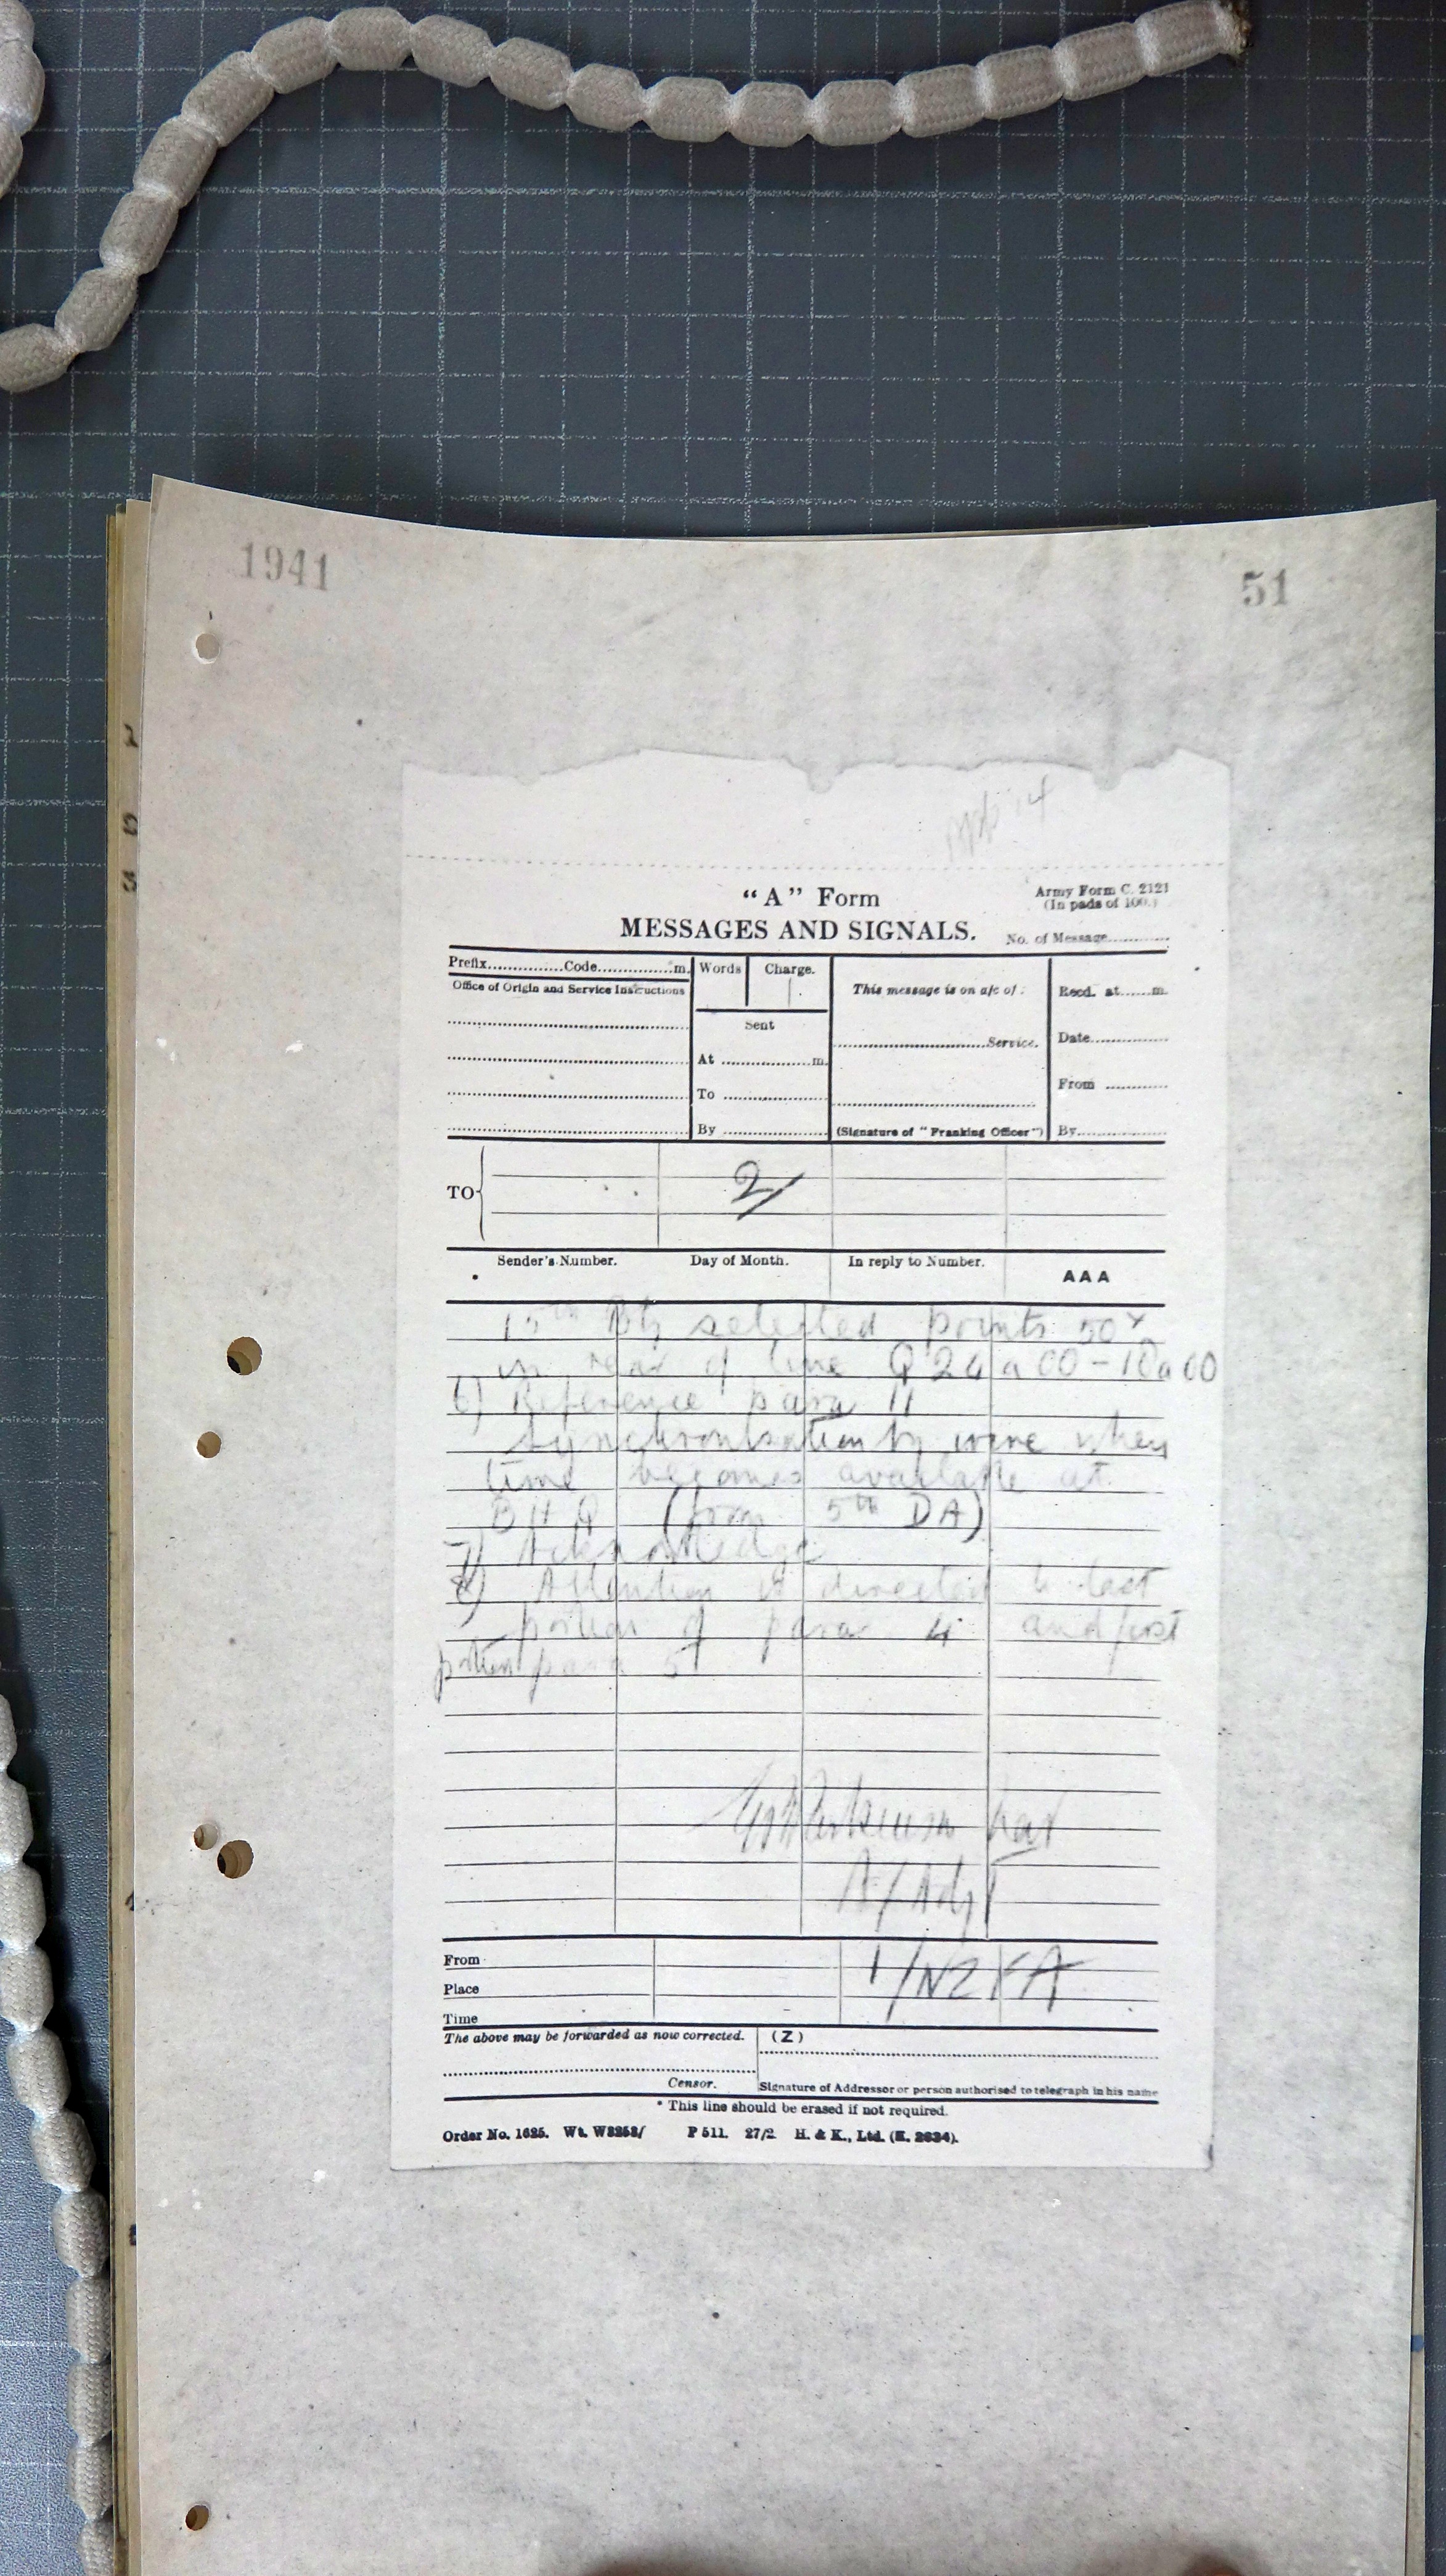 1941
51
App 14
"A" Form
Army Form C. 2121
(In pads of 100.)
MESSAGES AND SIGNALS.
No. of Message
Prefix Code m.
Words Charge.
This message is on a/c of :
Recd. at m.
Office of Origin and Service Instructions
Sent
Service.
Date
At m.
From
To
By
(Signature of "Franking Officer")
By
TO
2/
Sender's Number.
Day of Month.
In reply to Number.
AAA
15th Bty selected points 50x
in rear of line Q 24 a 00 - 10 a 00
6) Reference para 11
Synchronisation by wire when
time becomes available at
BHQ (from 5th DA)
7) Acknowledge
8) Attention is directed to last
portion of para 4 and first
portion para 5
Parkinson
A/Adjt
1/NZFA
From
Place
Time
The above may be forwarded as now corrected.
(Z)
Censor.
Signature of Addressor or person authorised to telegraph in his name
* This line should be erased if not required.
Order No. 1625. Wt. W3253/ P 511. 27/2 H. & K., Ltd. (E. 2634).